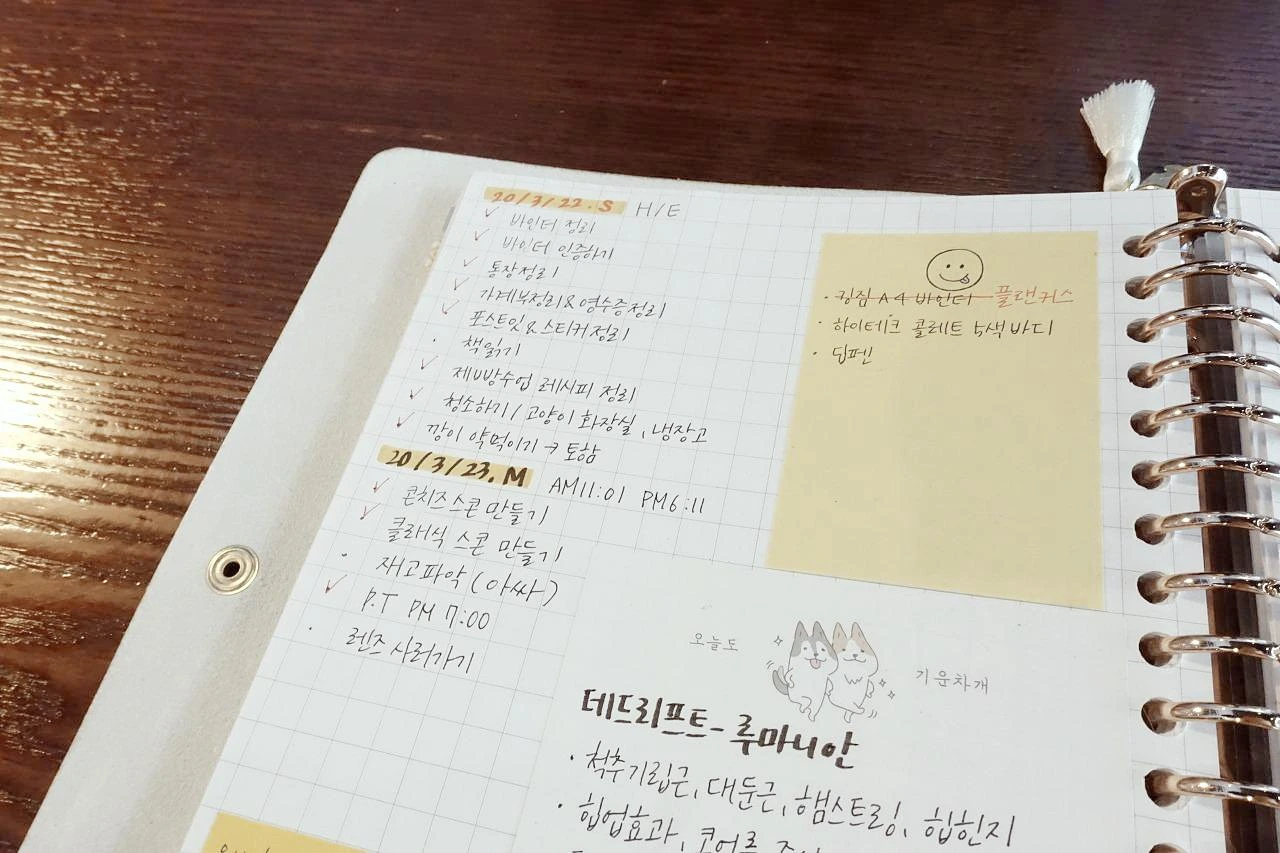 20/3/22. S H/E
바인더 정리
바인더 인증하기
통장정리
가계부정리&영수증정리
포스트잇&스티커정리
책읽기
제빵수업 레시피 정리
청소하기/고양이 화장실, 냉장고
깡이 약먹이기 → 토함
20/3/23. M AM11:01 PM6:11
콘치즈스콘 만들기
클래식 스콘 만들기
재고파악(아싸)
P.T PM 7:00
렌즈 사러가기
· 킹짐 A4 바인더 플랜커스
· 하이테크 콜레트 5색바디
· 딥펜
오늘도
기운차개
데드리프트- 루마니안
· 척추기립근, 대둔근, 햄스트링, 힙힌지
· 힙업효과, 코어